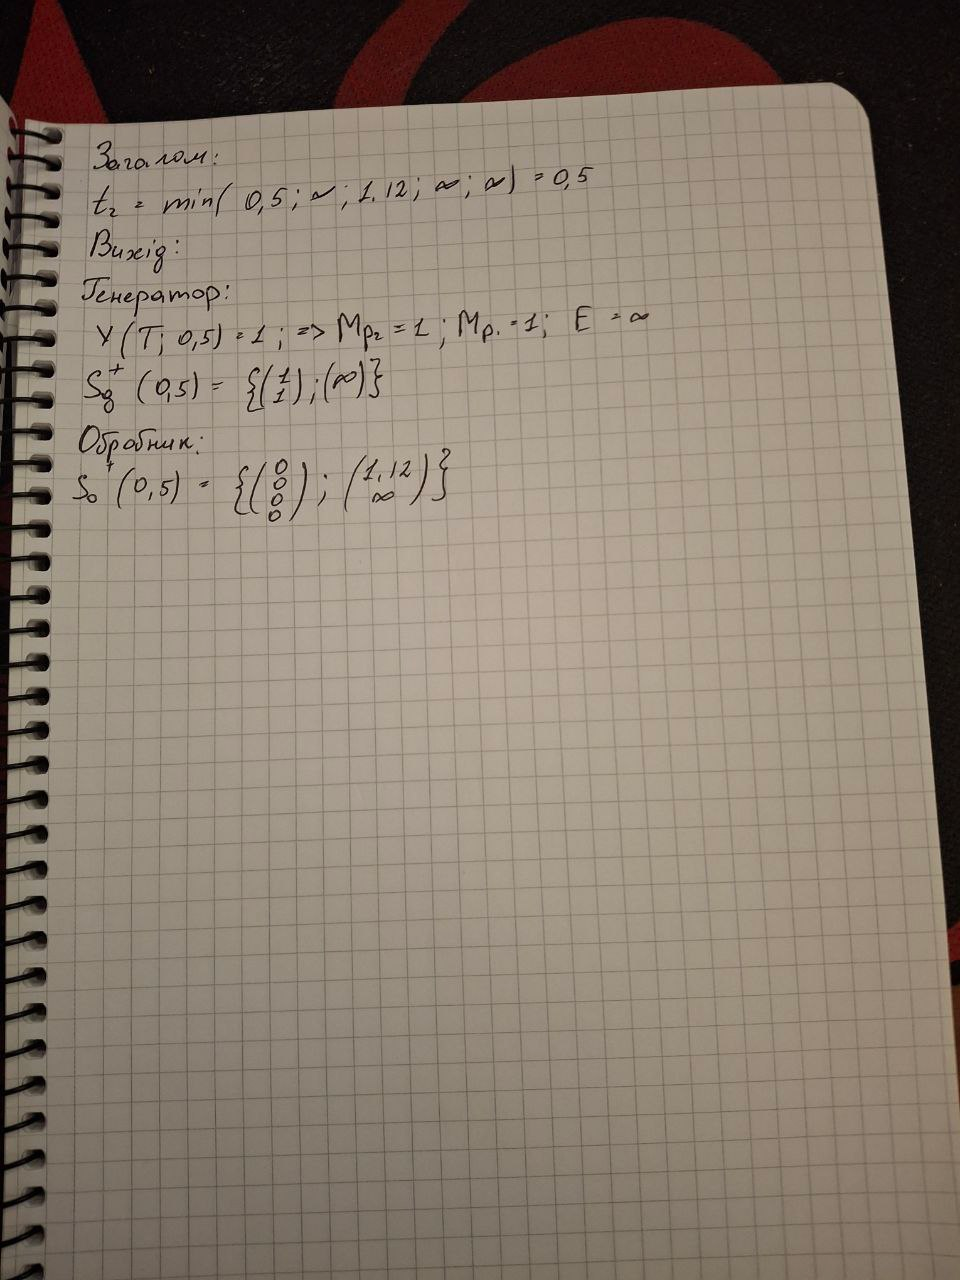 Загалом:
t₂ = min( 0,5 ; ∞ ; 1.12 ; ∞ ; ∞) = 0,5
Вихід:
Генератор:
Y (T; 0,5) = 1 ; => Mp₂ = 1 ; Mp₁ = 1; E = ∞
Sg⁺ (0,5) = {(1 1) ; (∞)}
Обробник:
So⁺ (0,5) = {(0 0 0 0) ; (1.12 ∞)}